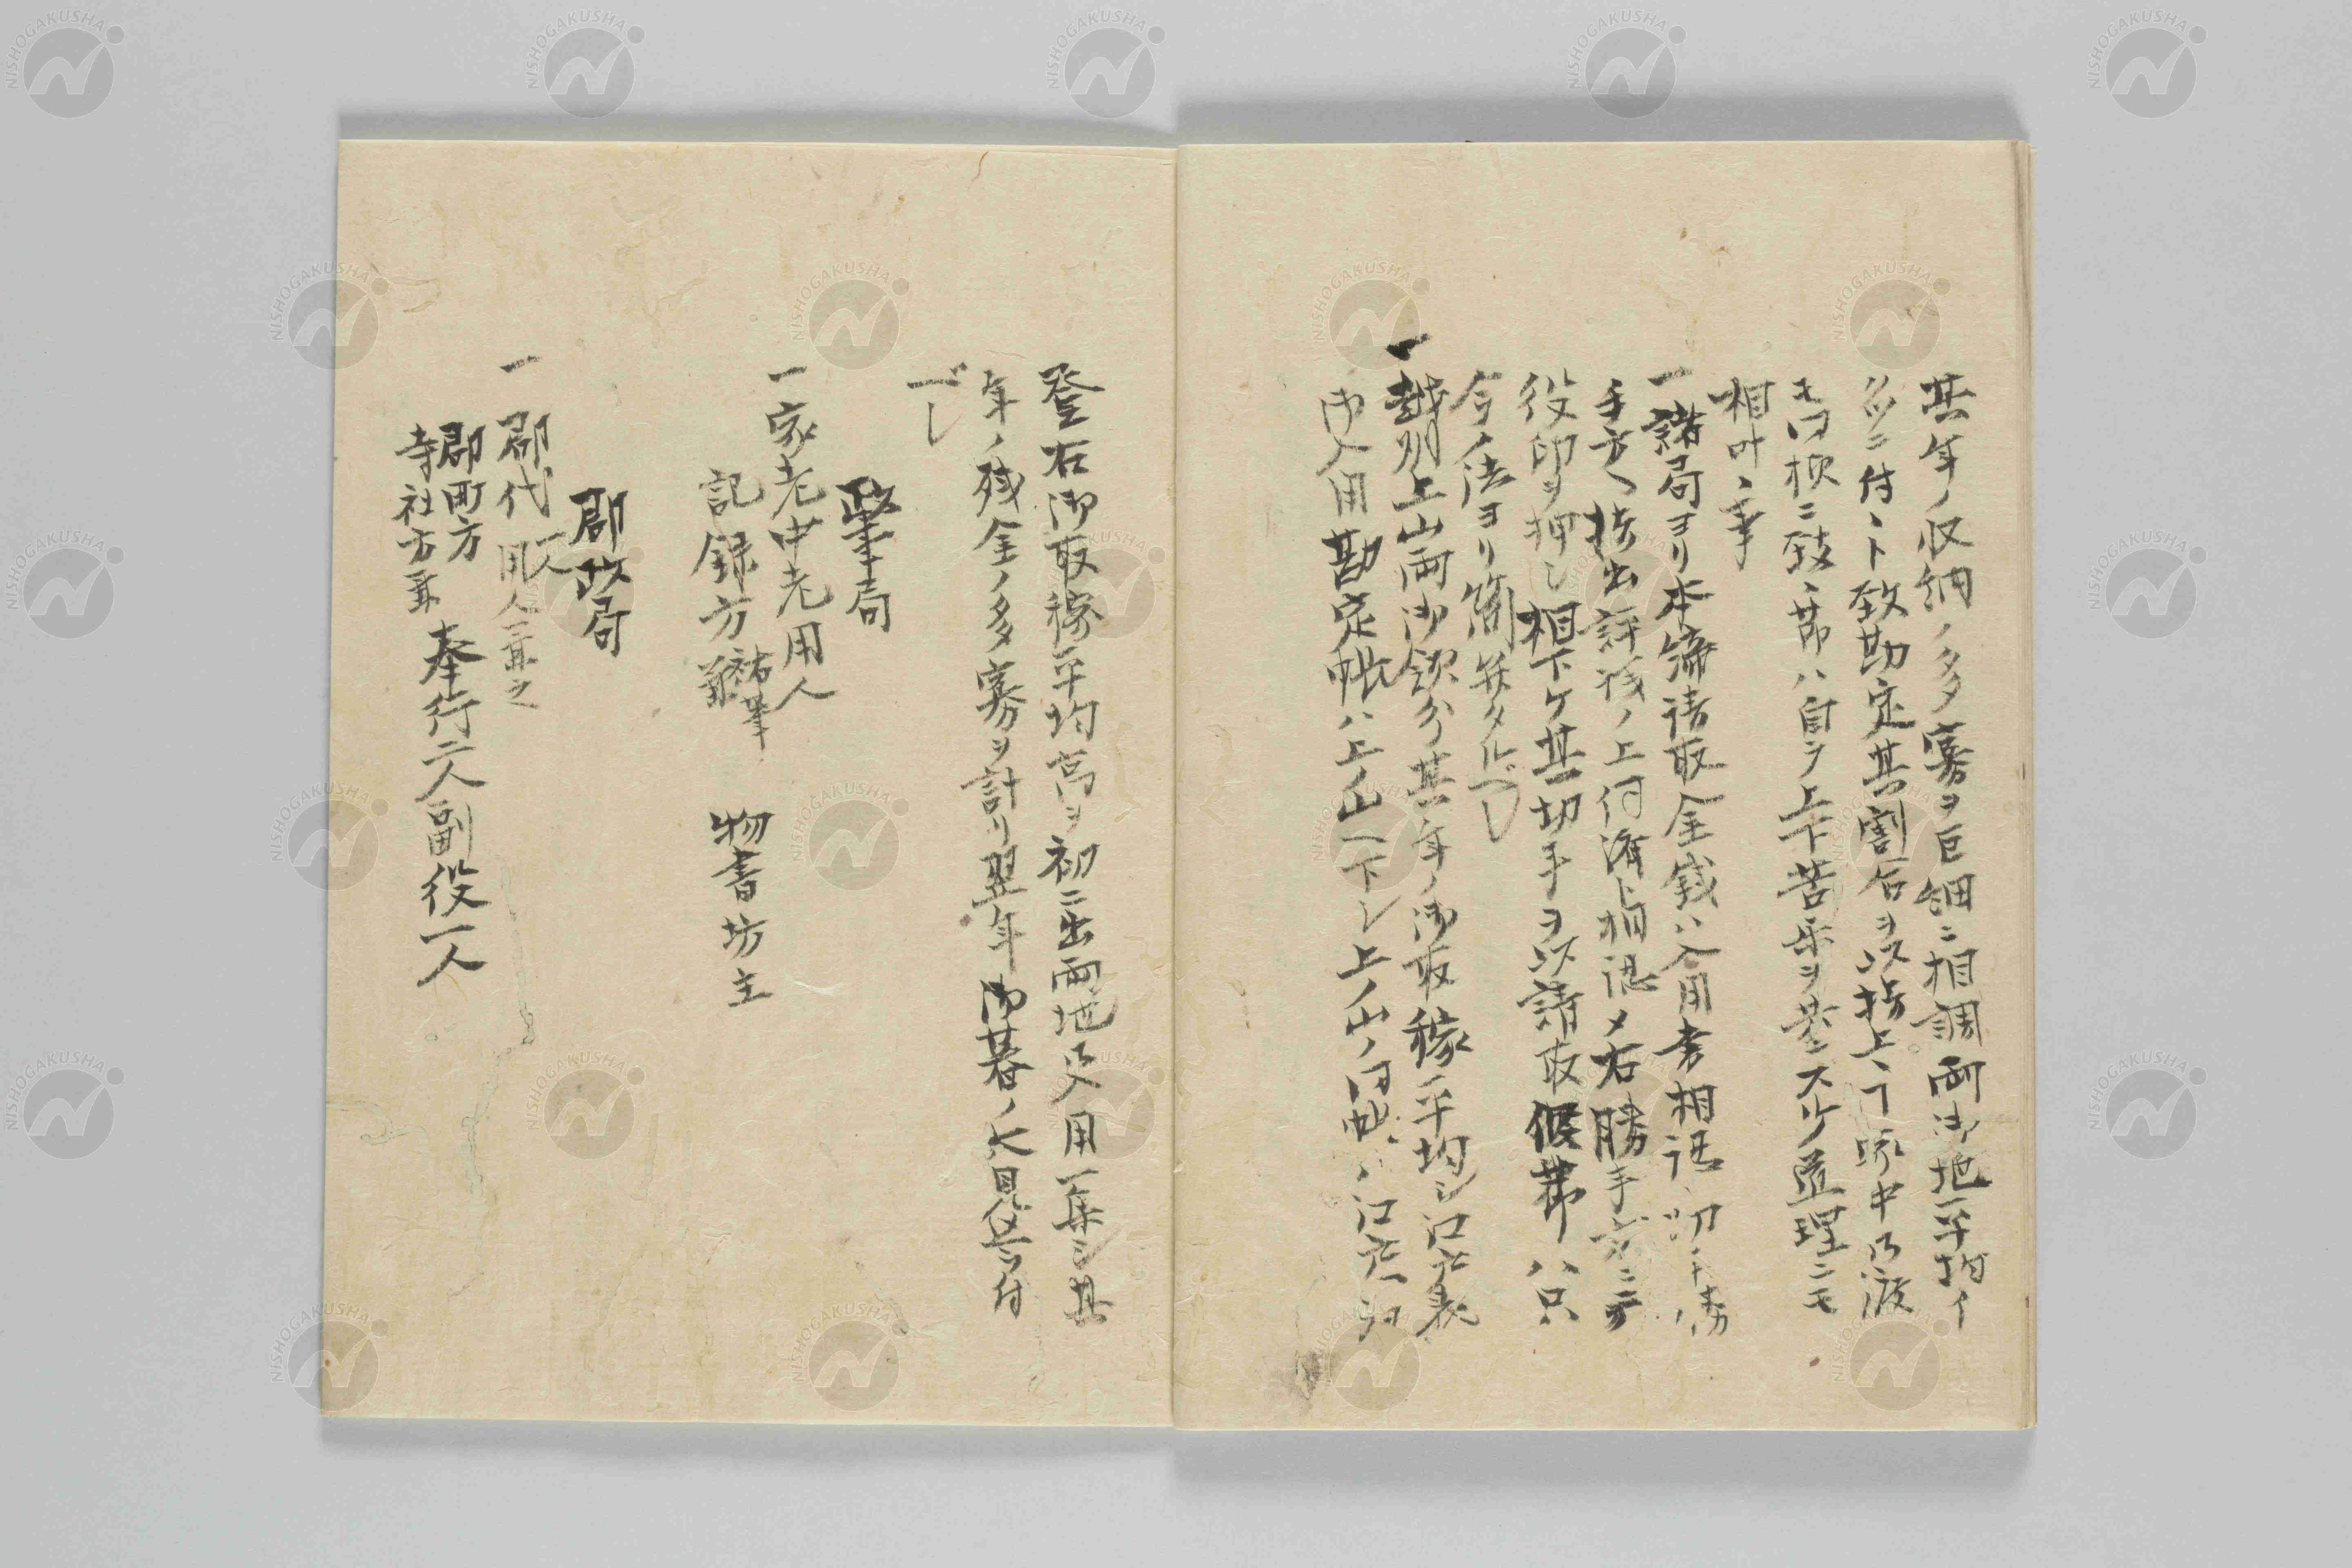 其年ノ収納ノ多寡ヲ巨細ニ相調両御地平均イ
クツニ付ト致勘定其割合ヲ以指上下家中乃渡
方同様ニ致候節ハ自ラ上下苦楽ヲ共ニスル道理ニモ
相叶候事
一諸局ヨリ本締請取金銭ハ入用書相認切手
手方ヘ指出評議ノ上伺済ト相認メ右勝手方ニテ
役印ヲ押シ相下ケ其切手ヲ以請取候節ハ只
今ノ法ヨリ簡弁タルベシ
一越州上山両御領分其年ノ御取稼平均シ江戸表
御入用勘定帳ハ上ノ山ヘ下シ上ノ山ノ同帳ハ江戸ヘ為
登右御取稼平均高ヲ初ニ出両地入用一集シ其
年ノ残金ノ多寡ヲ計リ翌年御暮ノ大見込ヲ付
ベシ
政事局
一家老中老用人
記録方 祐筆 兼 物書坊主
郡政局
一郡代一人 用人兼之
郡町方
寺社方兼 奉行二人副役一人